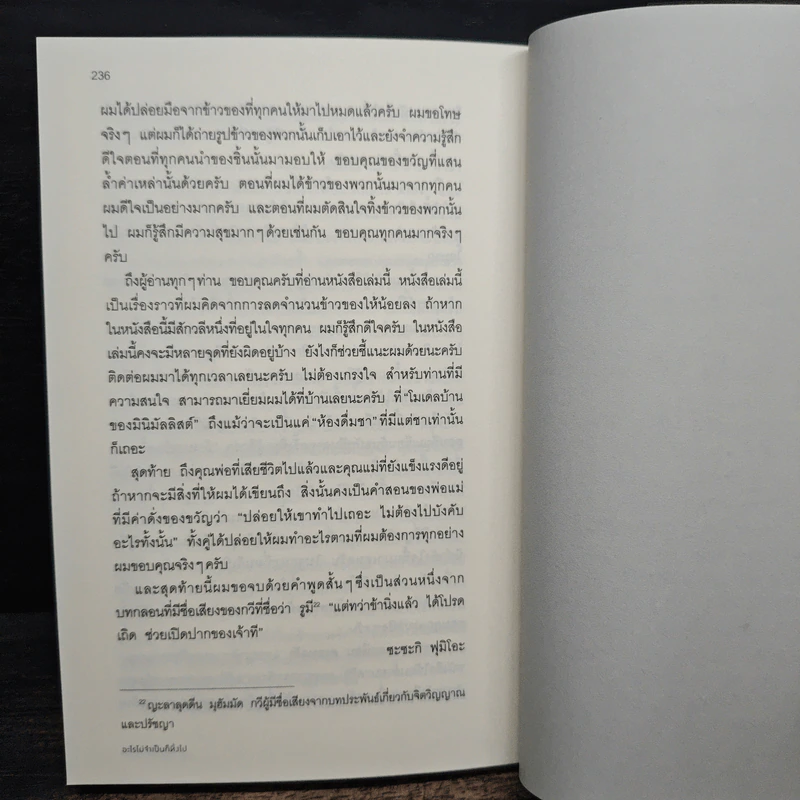 236
ผมได้ปล่อยมือจากข้าวของที่ทุกคนให้มาไปหมดแล้วครับ ผมขอโทษ
จริงๆ แต่ผมก็ได้ถ่ายรูปข้าวของพวกนั้นเก็บเอาไว้และยังจำความรู้สึก
ดีใจตอนที่ทุกคนนำของชิ้นนั้นมามอบให้ ขอบคุณของขวัญที่แสน
ล้ำค่าเหล่านั้นด้วยครับ ตอนที่ผมได้ข้าวของพวกนั้นมาจากทุกคน
ผมดีใจเป็นอย่างมากครับ และตอนที่ผมตัดสินใจทิ้งข้าวของพวกนั้น
ไป ผมก็รู้สึกมีความสุขมากๆ ด้วยเช่นกัน ขอบคุณทุกคนมากจริงๆ
ครับ
ถึงผู้อ่านทุกๆ ท่าน ขอบคุณครับที่อ่านหนังสือเล่มนี้ หนังสือเล่มนี้
เป็นเรื่องราวที่ผมคิดจากการลดจำนวนข้าวของให้น้อยลง ถ้าหาก
ในหนังสือนี้มีสักวลีหนึ่งที่อยู่ในใจทุกคน ผมก็รู้สึกดีใจครับ ในหนังสือ
เล่มนี้คงจะมีหลายจุดที่ยังผิดอยู่บ้าง ยังไงก็ช่วยชี้แนะผมด้วยนะครับ
ติดต่อผมมาได้ทุกเวลาเลยนะครับ ไม่ต้องเกรงใจ สำหรับท่านที่มี
ความสนใจ สามารถมาเยี่ยมผมได้ที่บ้านเลยนะครับ ที่ “โมเดลบ้าน
ของมินิมัลลิสต์” ถึงแม้ว่าจะเป็นแค่ “ห้องดื่มชา” ที่มีแต่ชาเท่านั้น
ก็เถอะ
สุดท้าย ถึงคุณพ่อที่เสียชีวิตไปแล้วและคุณแม่ที่ยังแข็งแรงดีอยู่
ถ้าหากจะมีสิ่งที่ให้ผมได้เขียนถึง สิ่งนั้นคงเป็นคำสอนของพ่อแม่
ที่มีค่าดั่งของขวัญว่า “ปล่อยให้เขาทำไปเถอะ ไม่ต้องไปบังคับ
อะไรทั้งนั้น” ทั้งคู่ได้ปล่อยให้ผมทำอะไรตามที่ผมต้องการทุกอย่าง
ผมขอบคุณจริงๆ ครับ
และสุดท้ายนี้ผมขอจบด้วยคำพูดสั้นๆ ซึ่งเป็นส่วนหนึ่งจาก
บทกลอนที่มีชื่อเสียงของกวีที่ชื่อว่า รูมี²² “แต่ทว่าข้านิ่งแล้ว ได้โปรด
เถิด ช่วยเปิดปากของเจ้าที”
ซะซะกิ ฟุมิโอะ
²² ญะลาลุดดีน มุฮัมมัด กวีผู้มีชื่อเสียงจากบทประพันธ์เกี่ยวกับจิตวิญญาณ
และปรัชญา
อะไรไม่จำเป็นก็ทิ้งไป